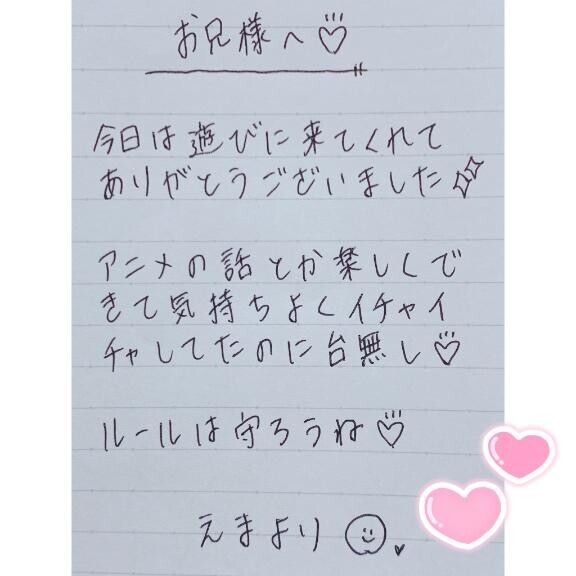 お兄様へ♡
今日は遊びに来てくれて
ありがとうございました
アニメの話とか楽しくで
きて気持ちよくイチャイ
チャしてたのに台無し♡
ルールは守ろうね♡
えまより